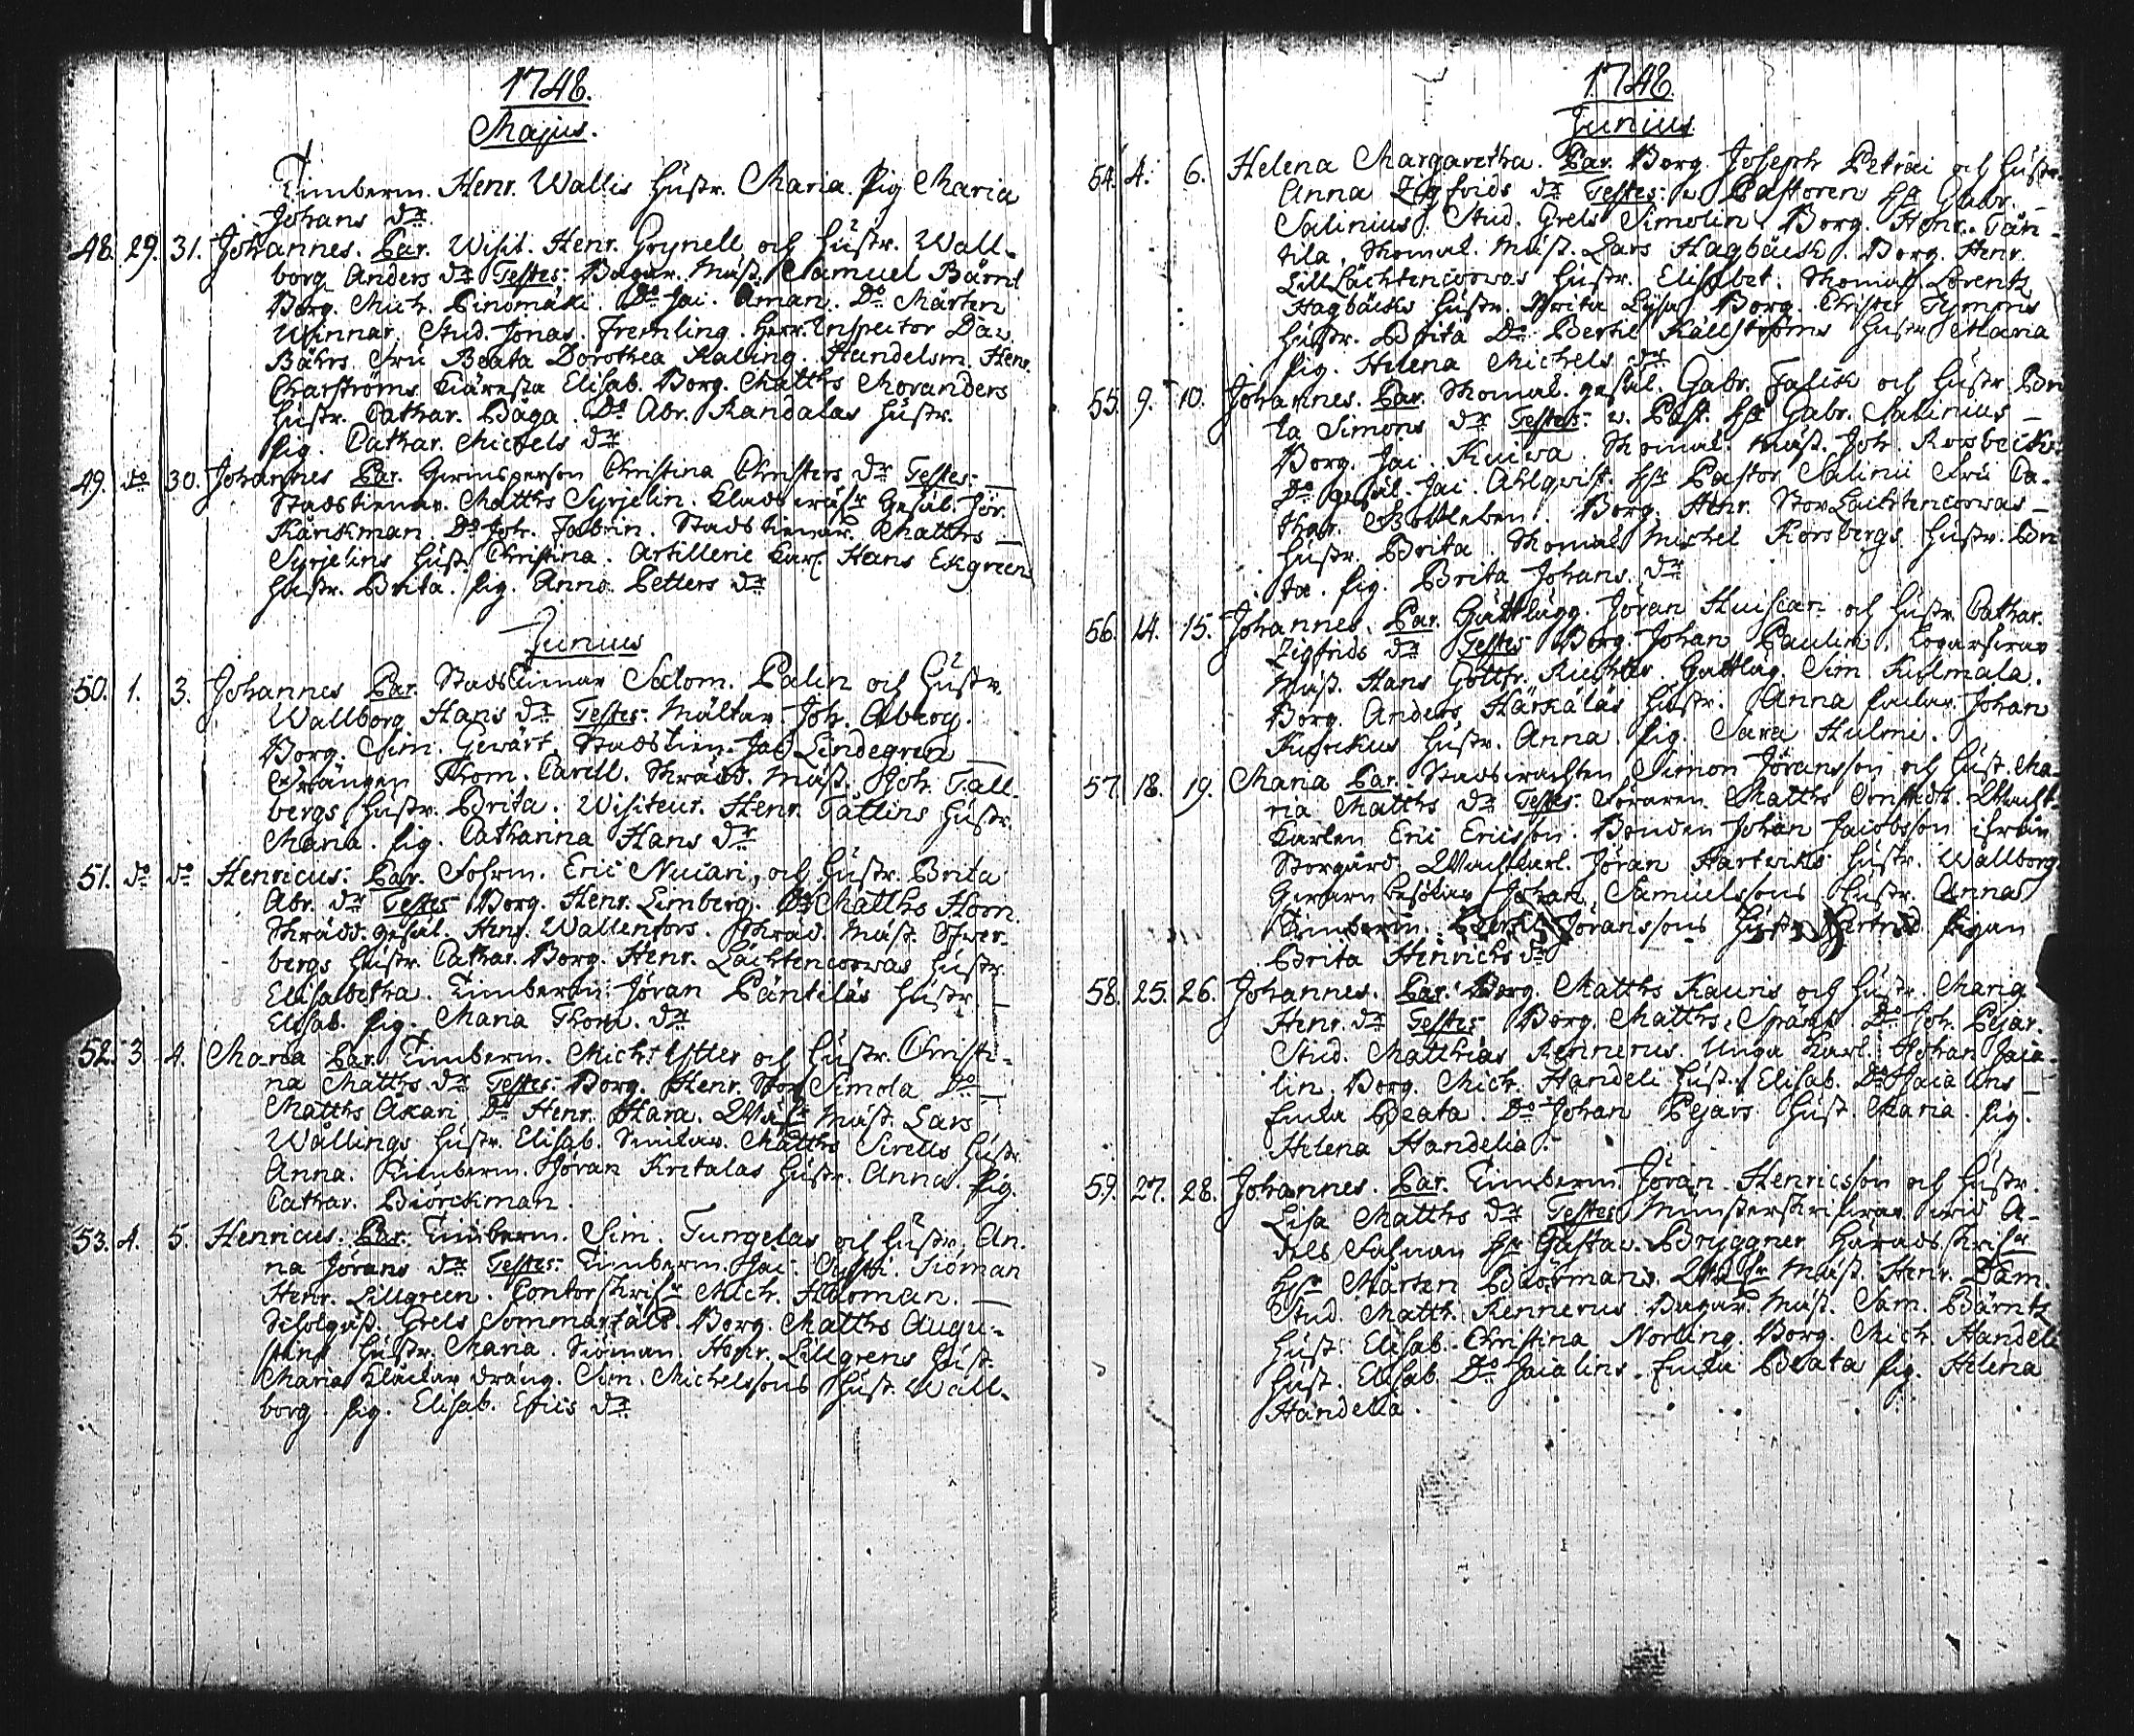 1748.
Majus.
Timberm. Henr. Wallis hustr. Maria. pig Maria
Johans dr
48. 29. 31. Johannes. Par. Visit. Henr. Grynell och hustr. Wall-
borg Anders dr Testes: Bagar. Mäst. Samuel Bärnt
Borg. Mich. Pinomäki. Do Jac. Aman. Do Mårten
Winnar, Stud. Jonas Fremling. Herr Inspector Dav.
Bährs Fru Beata Dorothea Kaling. Handelsm. Henr.
Charströms Käresta Elisab. Borg. Matths Moranders
hustr. Cathar. Båga. Do Abr. Randalas hustr.
pig. Cathar. Michels dr
49. do 30. Johannes Par. Christina Christers dr Testes:
Stadstienar. Matths Syrjelin. Gesäl. Jör.
Kärckman. Do Joh. Fabrin. Stadstienar. Matths
Syrjelins hust. Christina. Artillerie Karl. Hans Ekgreen
hustr. Brita. pig. Anna Petters dr
Junius
50. 1. 3. Johannes Par. Stadstienar Salom. Palin och hustr.
Wallborg Hans dr Testes: Mältar. Joh. Aberg.
Borg. Sim. Gewärt. Stadstien. Jac Lindegren
Drängen Thom. Carell. Skrädd. Mäst. Joh. Täll-
bergs hustr. Brita. Visiteur. Henr. Tätlins hustr.
Maria. pig. Catharina Hans dr
51. do do Henricus: Par. Fohrm. Eric Nuiari, och hustr. Brita
Abr. dr Testes Borg. Henr. Limberg. Do Matths Hoon.
Skrädd. gesäl. Henr. Wallenfors. Skräd. Mäst. Ofwer-
bergs hustr. Cathar. Borg. Henr. Lächtencorwas hustr.
Elisabetha. Timberm: Jöran Päntiläs hustr.
Elisab. pig. Maria Thom. dr
52. 3. 4. Maria Par. Timberm. Mich. Ytter och hustr. Christi-
na Matths dr Testes: Borg. Henr. Stor Simola Do
Matths Akari. Do Henr. Hara. Mäst. Lars
Wållings hustr. Elisab. Matths Sirells hustr.
Anna. Timberm. Jöran Kretalas hustr. Anna. pig.
Cathar. Biörckman.
53. 4. 5. Henricus: Par: Timberm. Sim. Tungelas och hustr. An.
na Jörans dr Testes: Timberm. Jac. Antti. Siöman
Henr. Lillgreen. Contorskrifr Mich. Hooman.
Grels Sommarfält. Borg. Matths Augu-
stins hustr. Maria. Siöman. Henr. Lillgrens hust.
Maria dräng. Sim. Michelssons hust. Wall-
borg. pig. Elisab. Erics dr
1748.
Junius
54. 4. 6. Helena Margaretha. Par. Borg. Joseph Petræi och hustr.
Anna Zigfrids dr Testes: v. Pastoren hr Gabr.
Salinius. Stud. Grels Simolin. Borg. Henr. Tän-
tila, Skomak. Mäst. Lars Hagbäck. Borg. Henr.
Lill Lächtencorwas hustr. Elisabet. Skomak. Lorentz
Hagbäcks hustr. Brita Lisa. Borg. Christer Tymonis
hustr. Brita Do Bertil Källströms hustr. Maria
pig. Helena Michels dr
55. 9. 10. Johannes. Par. Skomak. gesäl. Gabr. Falck och hustr. Bri
ta Simons dr Testes: v. Past. hr Gabr. Salinius
Borg. Jac. Kuiwa. Skomak. Mäst. Joh. Rosbeck.
Do gesäl. Jac. Ahlqvist. hr Pastor Salinii Fru Ca-
thar. Bottleben. Borg. Henr. Stor Lächtencorwas
hustr. Brita. Skomak. Michel Korsbergs hustr. Bri
ta. pig. Brita Johans dr
56. 14. 15. Johannes. Par. Jöran Huiscari och hustr. Cathar.
Zigfrids dr Testes Borg. Johan Paulin.
Mäst. Hans Gottfr. Richter. Sim. Kulmala.
Borg. Anders Härkäläs hustr. Anna Johan
hustr. Anna. pig. Sara Hulmi.
57. 18. 19. Maria Par. Stadswachten Simon Jöransson och hust. Ma-
ria Matths dr Testes: Matths Wacht-
karlen Eric Ericsson. Bonden Johan Jacobsson ifrån
Storgård. Wachtkarl. Jöran Hartwiks hustr. Wallborg
Johan Samuelssons hustr. Anna
Timberm. Bertil Jöranssons hustr. Gertrud pigan
Brita Henrichs dr
58. 25. 26. Johannes. Par. Borg. Matths Kauris och hustr. Maria
Henr. dr Testes Borg. Matths Spåra. Do Joh. Pejar.
Stud. Matthias Rennerus. Unga Karl. Johan Jaca-
lin. Borg. Mich. Handeli hust. Elisab. Do Jacalins
Enka Beata. Do Johan Pejars hust. Maria. pig.
Helena Handelia.
59. 27. 28. Johannes. Par. Timberm. Jöran Henricsson och hustr.
Lisa Matths dr Testes Munsterskrifwar. wid A-
dels Fahnan hr Gustav. Bryggner Häradsskrifr
hr Mårten Biörman. Mäst. Henr. Dam.
Stud. Matth. Rennerus. Bagar. Mäst. Sam. Bärntz
hust. Elisab. Christina Norling. Borg. Mich. Handeli
hust. Elisab. Do Jacalins. Enka Beata pig. Helena
Handelia.